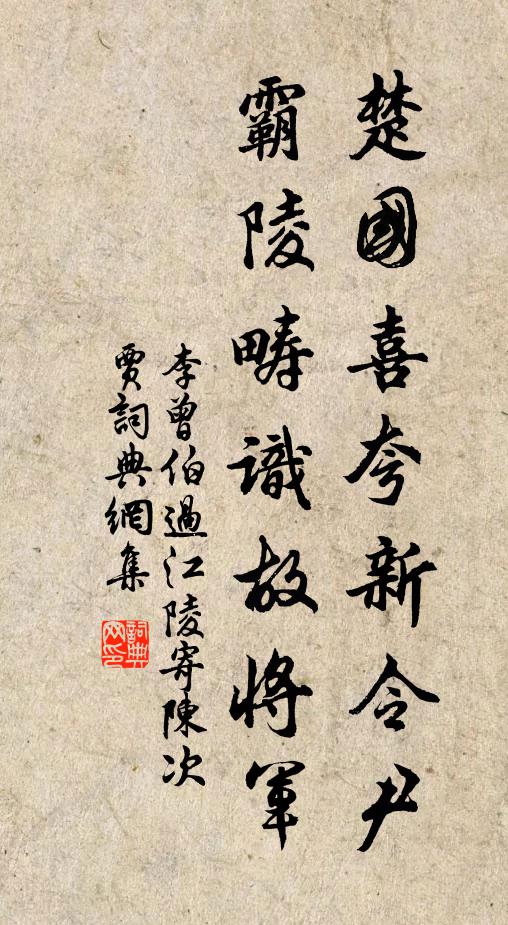 楚國喜夸新令尹
霸陵疇識故將軍
李曾伯過江陵寄陳次
賈詞典網集
詞典網印